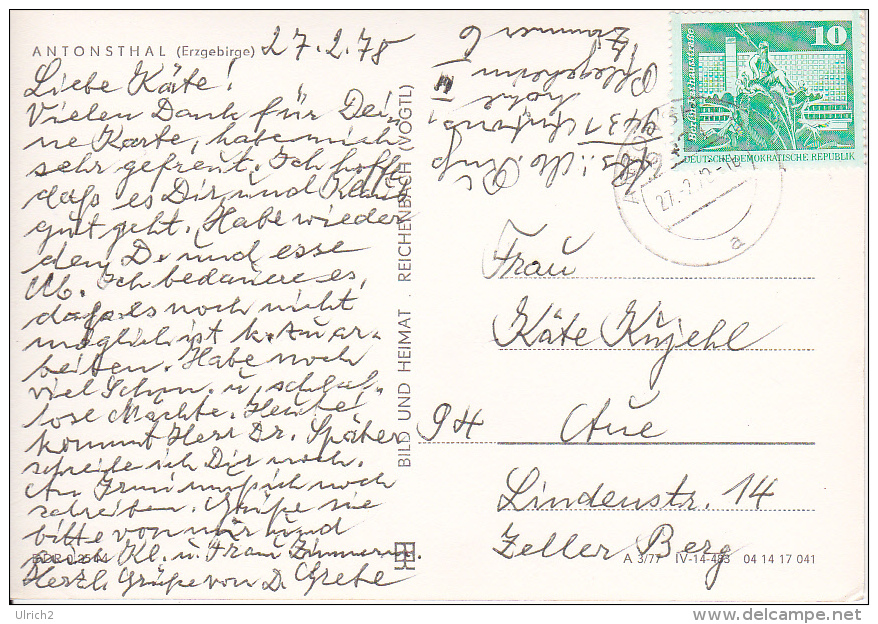 ANTONSTHAL (Erzgebirge)
27.2.78
Liebe Käte!
Vielen Dank für Dei-
ne Karte, habe mich
sehr gefreut. Ich hoffe
daß es Dir und Klaus
gut geht. Habe wieder
den Dr und esse
Ich bedauere es,
daß es noch nicht
möglich ist k. zu ar-
beiten. Habe noch
viel Schm. u. schlaf-
lose Nächte. Heute
kommt Herr Dr. Später
schreibe ich Dir noch.
An muß ich noch
schreiben. Grüße sie
bitte von mir und
Kl. u. Frau Zimmerm.
Herzl. Grüße von D. Grete
BILD UND HEIMAT . REICHENBACH (VOGTL)
Pflegeheim
Zimmer 6
10
DEUTSCHE DEMOKRATISCHE REPUBLIK
a
Frau
Käte Kujehl
94 Aue
Lindenstr. 14
Zeller Berg
A 3/77 IV-14-483 04 14 17 041
Ulrich2
www.delcampe.net